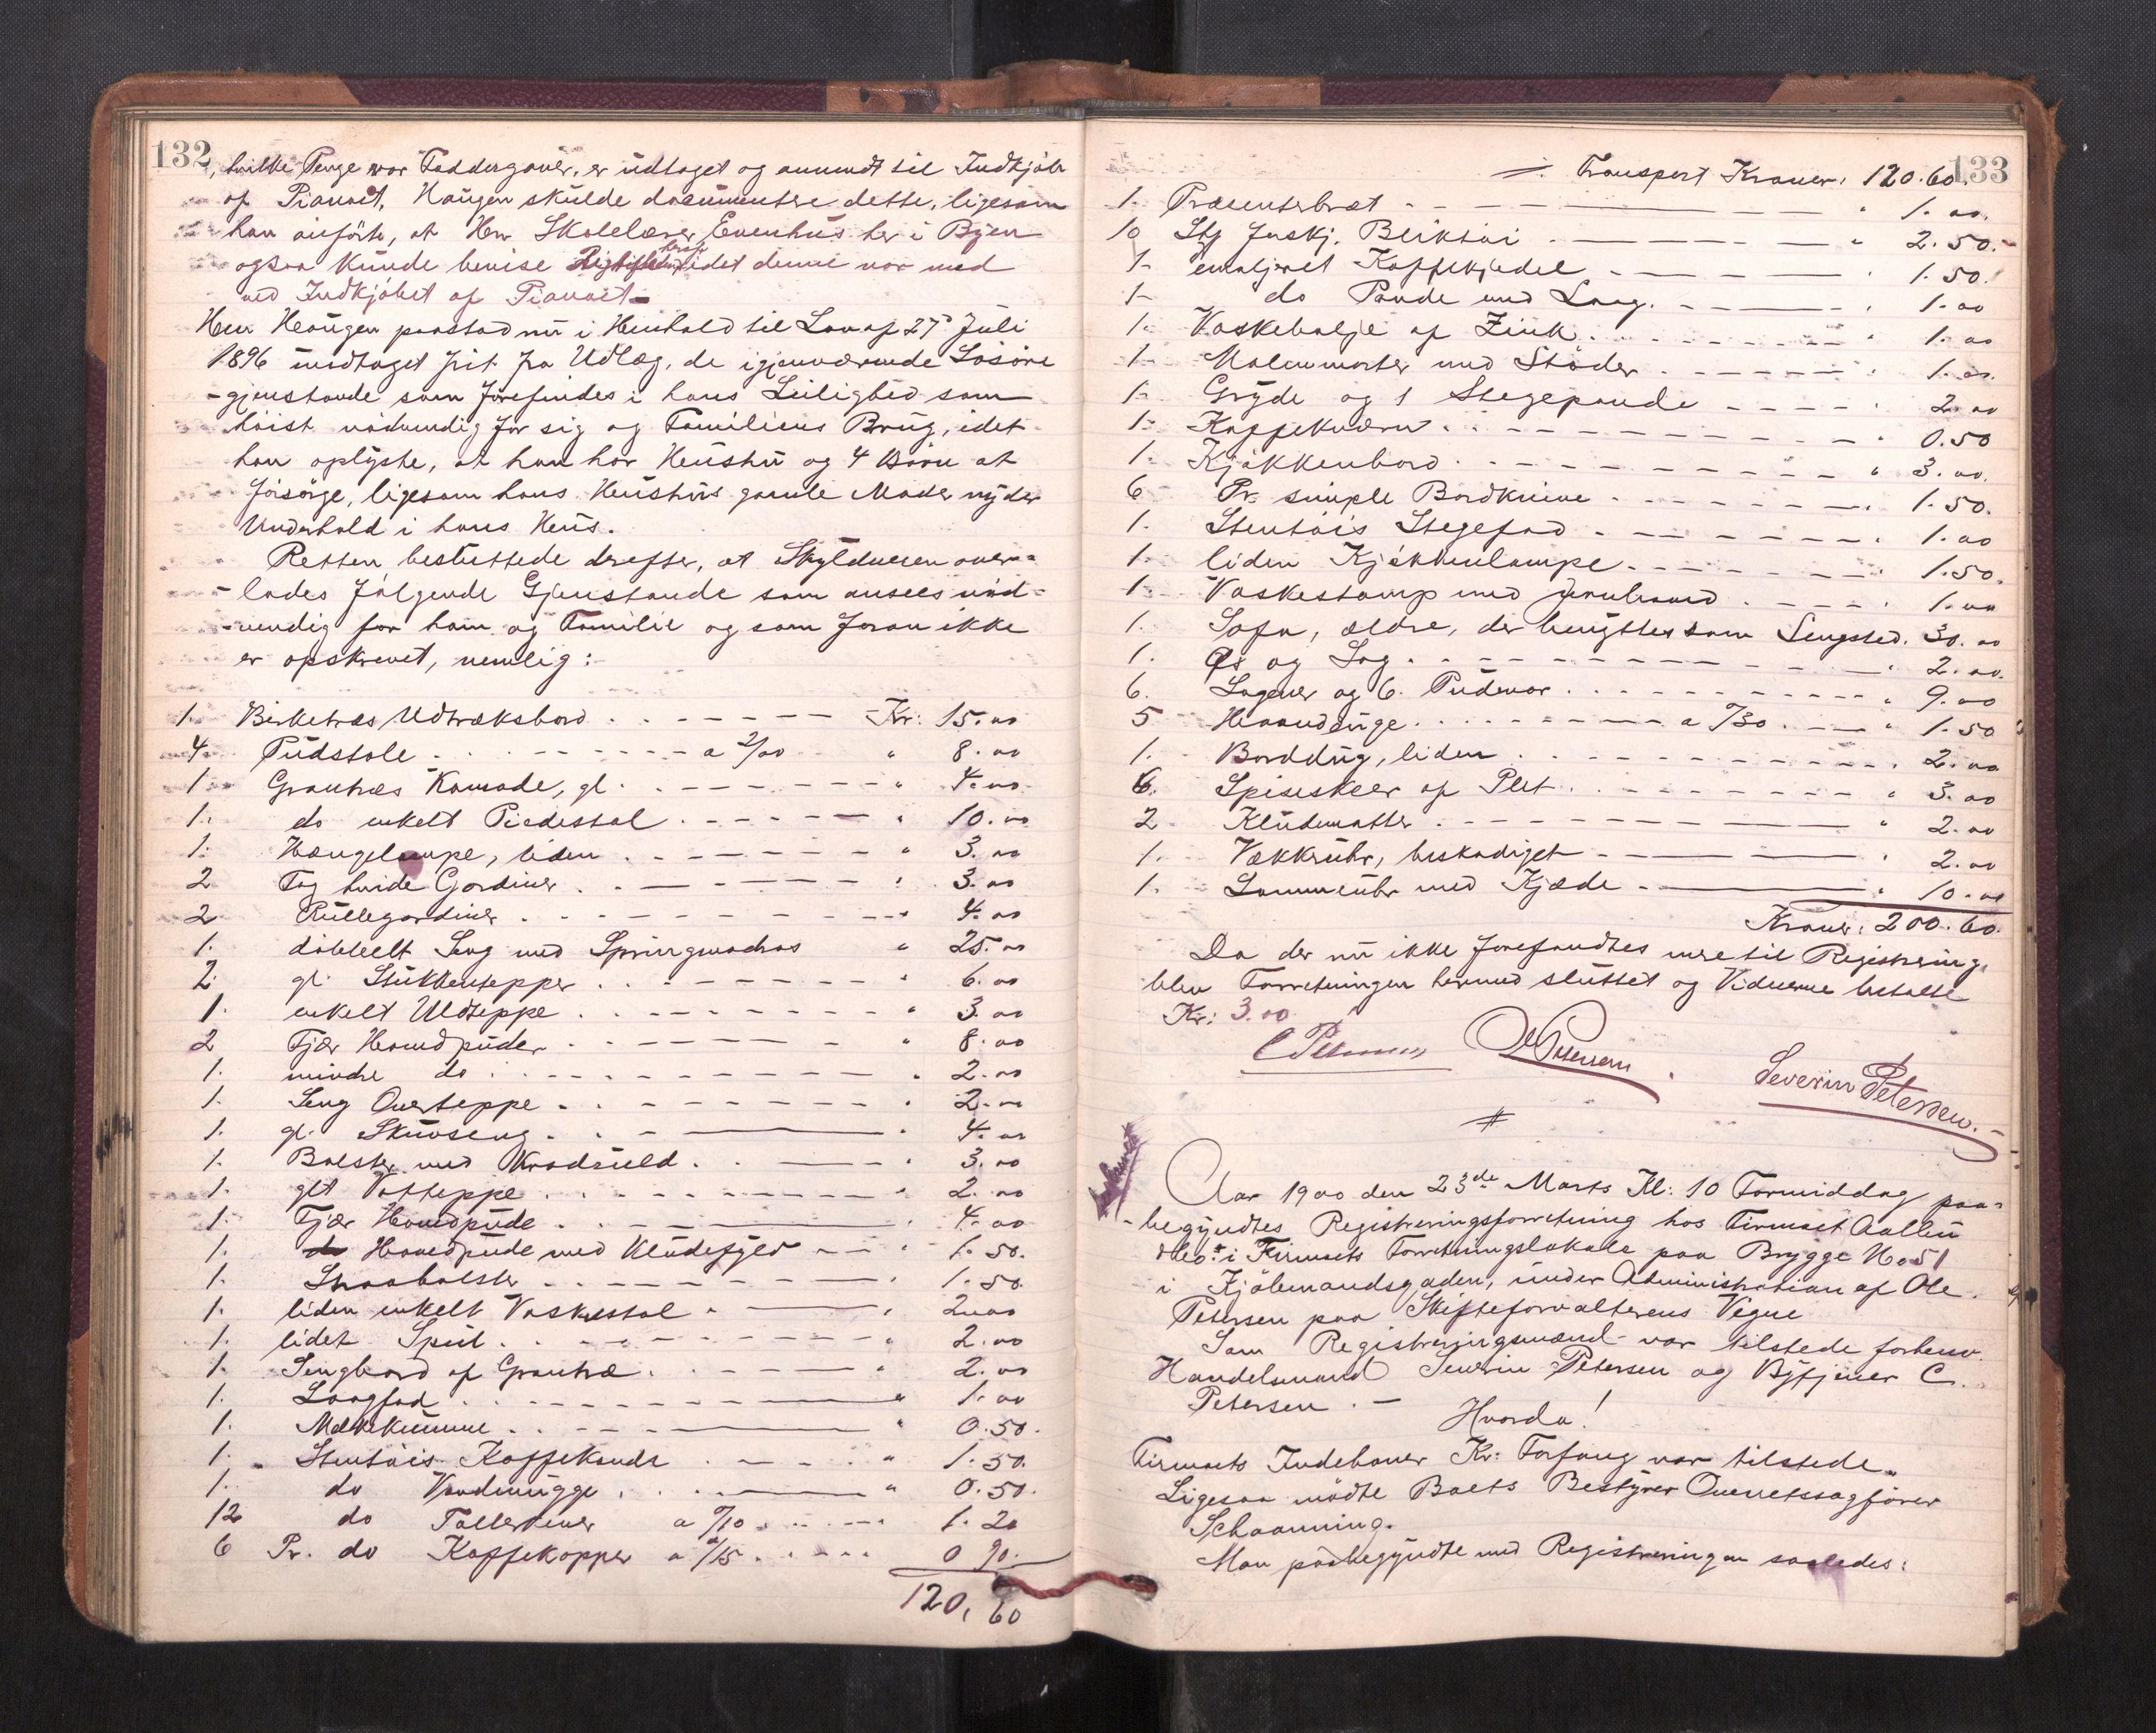 132
, hvilke Penge var Faddergaver, er udtaget og anvendt til Indkjøb
af Pianoet, Haugen skulde documentere dette, ligesom
han anførte, at Herr Skolelærer Evenhus her i Byen
ogsaa kunde bevise Rigtigheden heraf idet denne var med
ved Indkjøbet af Pianoet.
Herr Haugen paastod nu i Henhold til Lov af 27 Juli
1896 undtaget frit fra Udlæg, de igjenværende Løsøre
-gjenstande som forefindes i hans Leilighed som
høist nødvendig for sig og Familiens Brug, idet
han oplyste, at han har Hustru og 4 Børn at
forsørge, ligesom hans Hustrus gamle Moder nyder
Underhold i hans Hus.
Retten besluttede derefter, at Skyldneren over-
- lades følgende Gjenstande som ansees nød-
-vendig for ham og Familie og som foran ikke
er opskrevet, nemlig:
1. Birketræs Udtræksbord Kr: 15.00
4. Pudstole a 2/00 " 8.00
1. Grantræs Komode, gl. " 4.00
1. do enkelt Piedestal " 10.00
1. Hængelampe, liden " 3.00
2 Fag hvide Gardiner " 3.00
2 Rullegardiner " 4.00
1. dobbelt Seng med Springmadras " 25.00
2 gl. Stukketepper " 6.00
1. enkelt Uldteppe " 3.00
2 Fjær Hovedpuder " 8.00
1. mindre do " 2.00
1. Seng Overteppe " 2.00
1. gl. Skuvseng " 4.00
1. Bolster med Krøduld " 3.00
1. glt Vatteppe " 2.00
1. Fjær Hovedpude " 4.00
1. do Hovedpude med Kludefyld " 1.50.
1. Straabolster " 1.50
1. liden enkelt Vaskestol " 2.00
1. lidet Speil " 2.00
1. Sengbord af Grantræ " 2.00
1. Laagfad " 1.00
1. Melkekumme " 0.50.
1. Stentøis Kaffekande " 1.50.
1. do Vandmugge " 0.50.
12 do Tallerkener a 0/10 1.20
6 Pr. do Kaffekopper a 0/15 0 90.
120,60
133
Transport Kroner: 120.60.
1. Præsenterbræt " 1.00.
10 Stg Juskj. Bliktøi " 2.50.
1- emaljeret Kaffekjedel " 1.50.
1- do Pande med Laag. " 1.00
1. Vaskebalje af Zink " 1.00
1. Malmmorter med Støder " 1.00.
1- Gryde og 1 Stegepande " 2.00
1- Kaffekværn " 0.50
1. Kjøkkenbord " 3.00.
6 Pr. simple Bordknive " 1.50.
1. Stentøis Stegefad " 1.00
1. liden Kjøkkenlampe " 1.50.
1. Vaskestamp med Jernbaand " 1.00
1. Sofa, ældre, der benyttes som Sengsted. 30.00
1. Øx og Sag " 2.00.
6. Lagener og 6. Pudevar " 9.00
5 Haanduge a 0/30 " 1.50
1. Borddug, liden " 2.00
6. Spiseskeer af Plet " 3.00
2 Kludematter " 2.00
1. Vækkeruhr, beskadiget " 2.00
1. Lommeuhr med Kjæde " 10.00
Kroner: 200.60.
Da der nu ikke forefandtes mere til Registrering,
blev Forretningen hermed sluttet og Vidnerne betalte
Kr: 3.00
C Petersen O Petersen Severin Petersen.
#
Aar 1900 den 23de Marts Kl: 10 Formiddag paa-
-begyndtes Registreringsforretning hos Firmaet Aallen
& Co. i Firmaets Forretningslokale paa Brygge No 51
i Kjøbmandsgaden, under Administration af Ole
Petersen paa Skifteforvalterens Vegne
Som Registreringsmænd var tilstede forhenv.
Handelsmand Severin Petersen og Bytjener C.
Petersen. -
Hvorda!
Firmaets Indehaver Kr: Forfang var tilstede.
Ligesaa mødte Boets Bestyrer Overretssagfører
Schaanning.
Man paabegyndte med Registreringen saaledes: